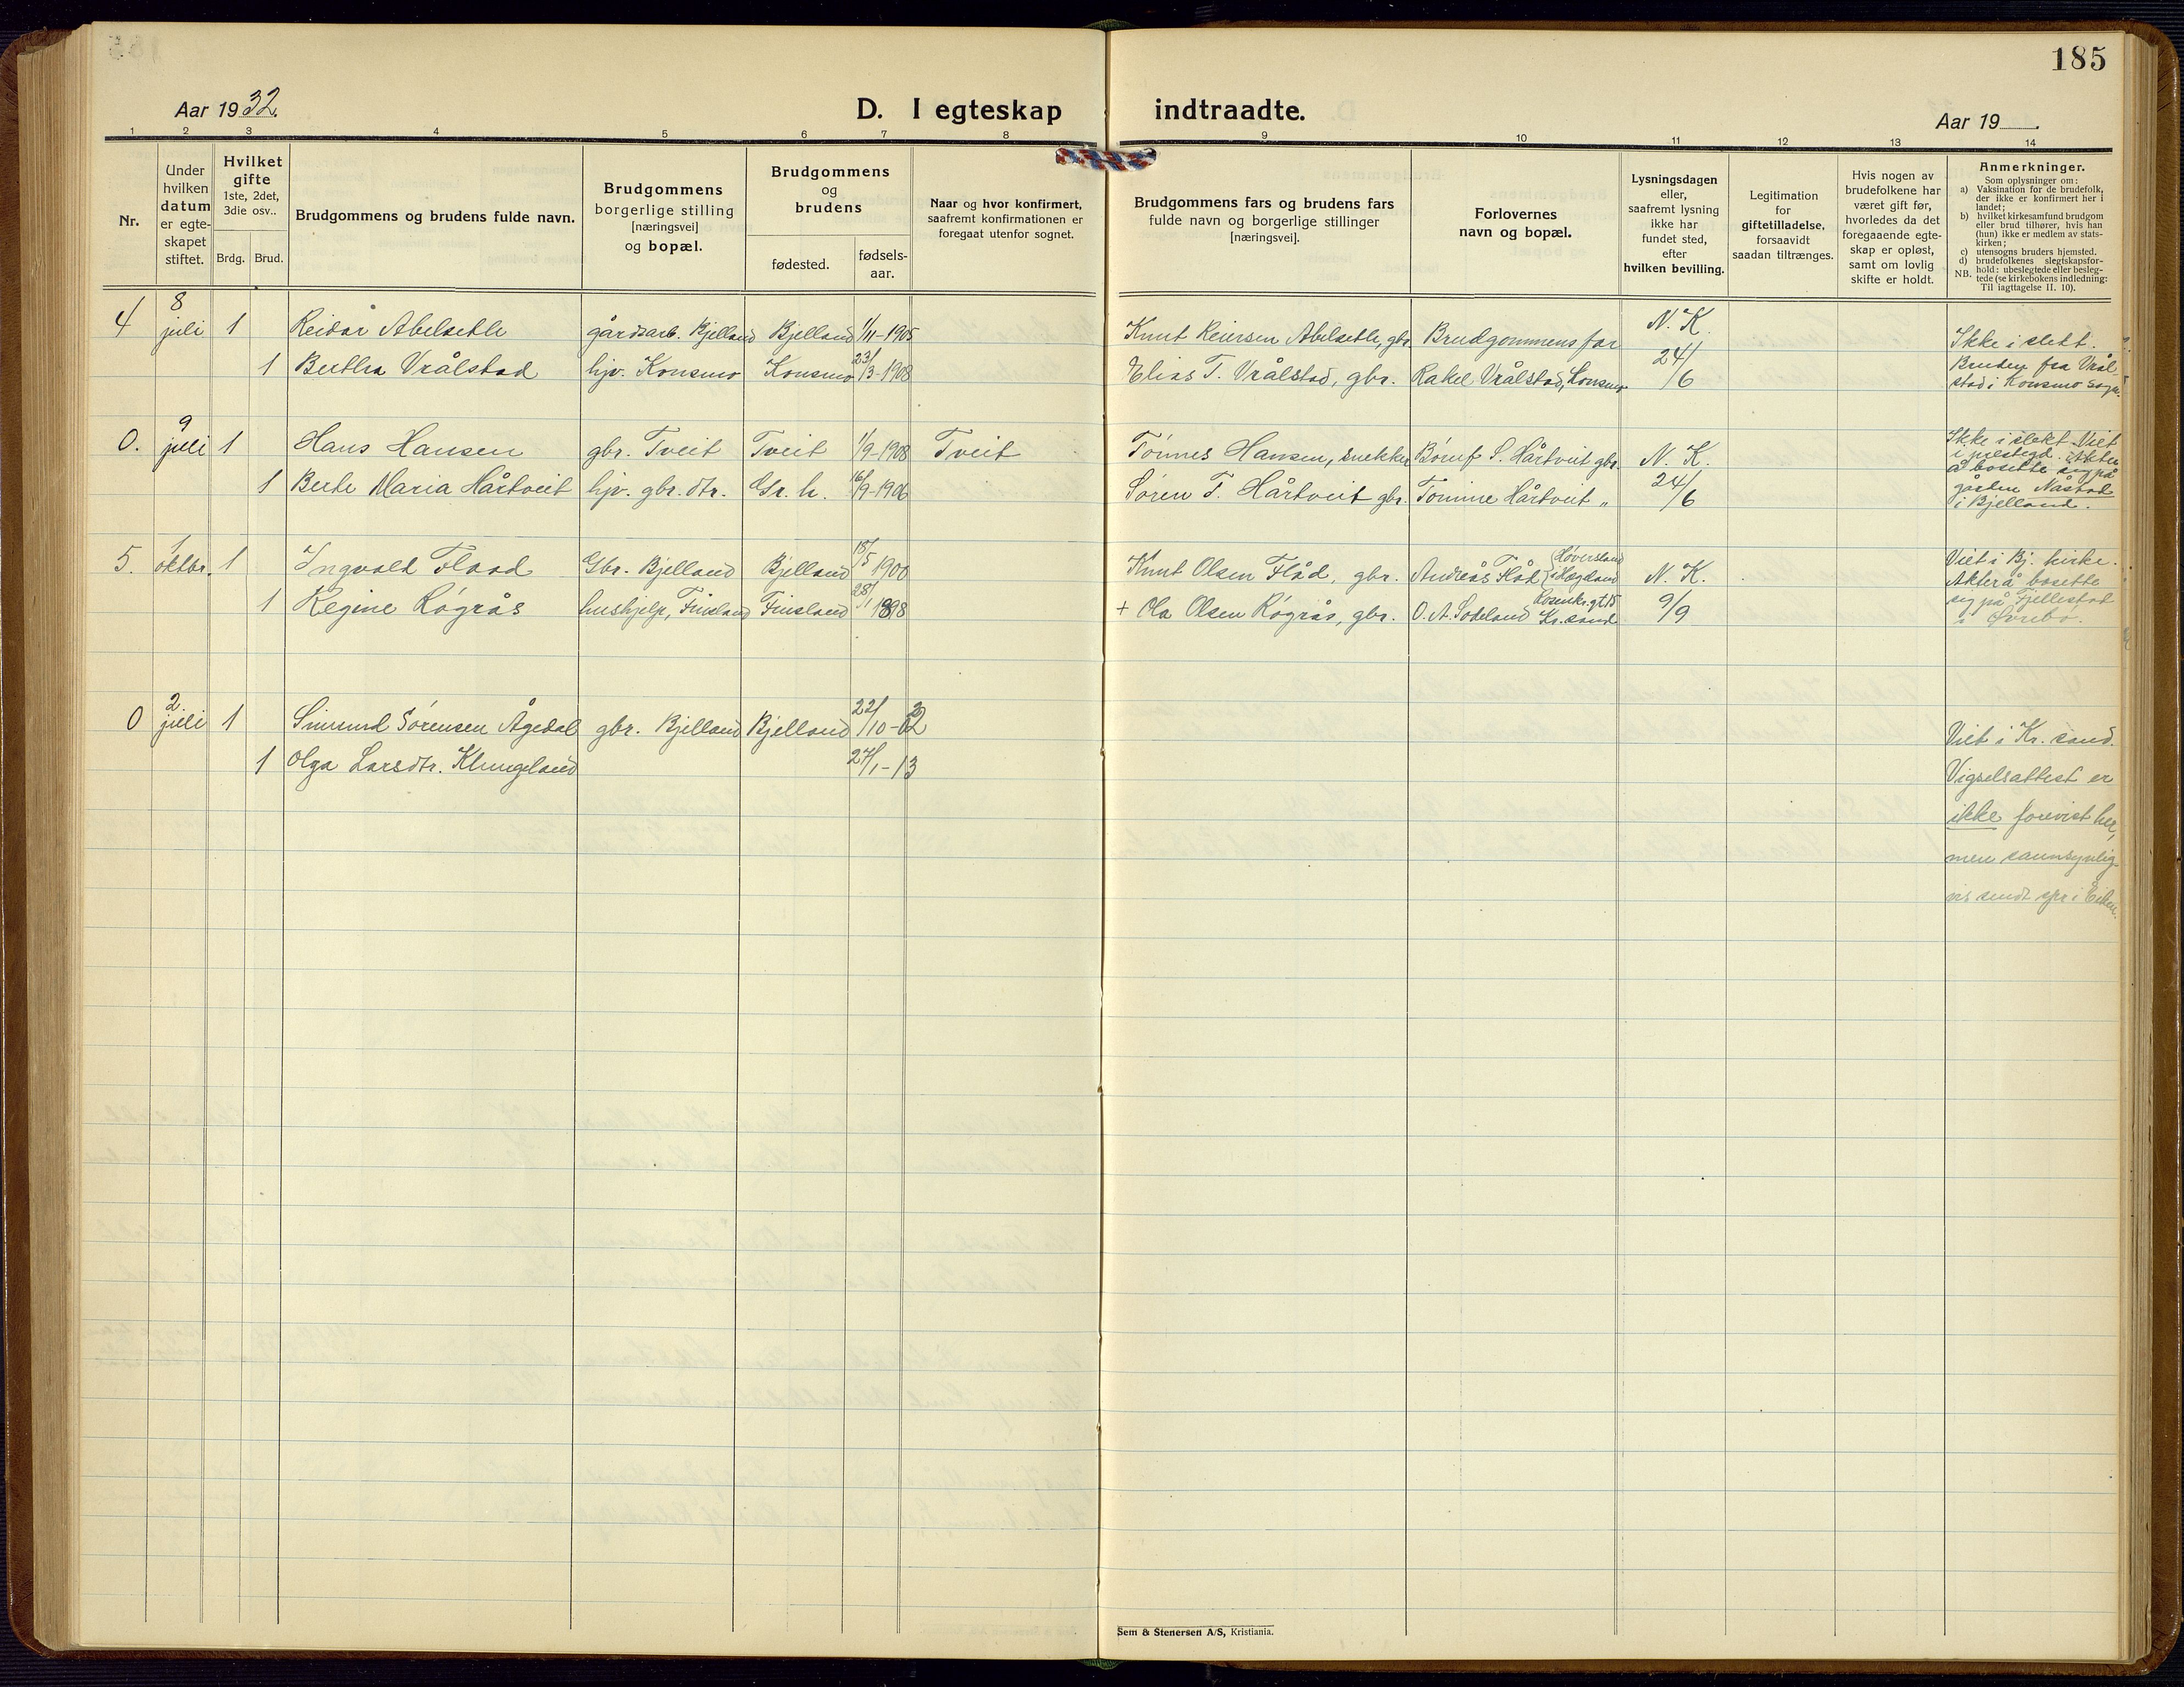 185
Aar 1932.
D. I egteskap indtraadte.
Aar 19
1 2 3 4 5 6 7 8 9 10 11 12 13 14
Nr.
Under
hvilken
datum
er egte-
skapet
stiftet.
Hvilket
gifte
1ste, 2det,
3die osv..
Brdg. Brud.
Brudgommens og brudens fulde navn.
Brudgommens
borgerlige stilling
[næringsvei]
og bopæl.
Brudgommens
og
brudens
fødested.
fødsels-
aar.
Naar og hvor konfirmert,
saafremt konfirmationen er
foregaat utenfor sognet.
Brudgommens fars og brudens fars
fulde navn og borgerlige stillinger
[næringsvei].
Forlovernes
navn og bopæl.
Lysningsdagen
eller,
saafremt lysning
ikke har
fundet sted,
efter
hvilken bevilling.
Legitimation
for
giftetilladelse,
forsaavidt
saadan tiltrænges.
Hvis nogen av
brudefolkene har
været gift før,
hvorledes da det
foregaaende egte-
skap er opløst,
samt om lovlig
skifte er holdt.
Anmerkninger.
Som oplysninger om:
a) Vaksination for de brudefolk,
der ikke er konfirmert her i
landet;
b) hvilket kirkesamfund brudgom
eller brud tilhører, hvis han
(hun) ikke er medlem av stats-
kirken;
c) utensogns bruders hjemsted.
d) brudefolkenes slegtskapsfor-
hold: ubeslegtede eller besleg-
NB. tede (se kirkebokens indledning:
Til iagttagelse II. 10).
4 8 juli 1 Reidar Abelsetle gårdsarb. Bjelland Bjelland 1/11-1905 Knut Reiersen Abelsetle, gbr. Brudgommens far N. K. Ikke i slekt.
1 Bertha Vrålstad hjv. Konsmo Konsmo 23/3-1908 Elias T. Vrålstad, gbr. Rakel Vrålstad, Konsmo 24/6 Bruden fra Vrål-
stad i Konsmo sogn.
0. 9 juli 1 Hans Hansen gbr. Tveit Tveit 1/9-1908 Tveit Tönnes Hansen, snekker S. Hårtveit gbr. N. K. Ikke i slekt. Viet
i prestegd. Akter
å bosette sig på
1 Berte Maria Hårtveit hjv. gbr. dtr. Gr. h. 16/9-1906 Sören T. Hårtveit gbr. Tomine Hårtveit " 24/6 gården Nåstad
i Bjelland.
5. 1 oktbr. 1 Ingvald Flaad Gbr. Bjelland Bjelland 18/5 1900 Knut Olsen Flåd, gbr. Andreas Flåd {Höversland i Hægeland N. K. Viet i Bj. kirke.
Akter å bosette
1 Regine Rögrås hushjelp, Finsland Finsland 28/1 1898 + Ola Olsen Rögrås, gbr. O. A. Sodeland Rosenkr. gt 15 Kr. sand 9/9 sig på Fjellestad
i Övrebö.
0 2. juli 1 Simund Sörensen Ågedal gbr. Bjelland Bjelland 22/10-02 Viet i Kr. sand.
1 Olga Larsdtr. Klungeland 27/1-13 Vigselsattest er
ikke forevist her,
men sannsynlig-
vis sendt spr. i Eiken.
Sem & Stenersen A/S, Kristiania.